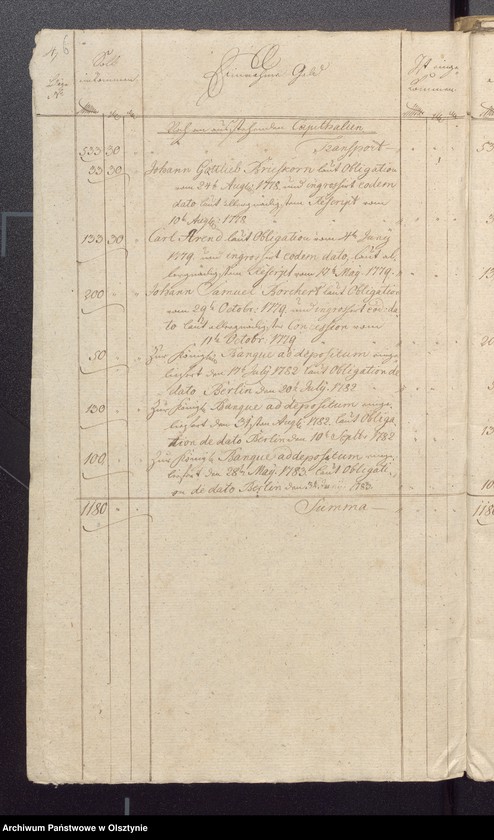 Soll
einkommen.
Einnahme Geld
Ist einge-
kommen.
Noch an ausstehenden Capithalien
533 30 Transport
33 30 Johann Gottlieb Brieskorn laut Obligation
vom 24t Augt: 1778. und ingrossirt eodem
dato laut allergnädigstem Rescript vom
10t Augt: 1778
133 30 Carl Arend laut Obligation vom 4t Junij
1779. und ingrossirt eodem dato, laut al-
lergnädigstem Rescript vom May 1779.
200 Johann Samuel Borchert laut Obligation
vom 29t Octobr: 1779. und ingrossirt eod: da-
to laut allergnädigsten Concession vom
11t Octobr: 1779
50 Zur Königl: Banque ad depositum einge-
liefert den July 1782 laut Obligation de
dato Berlin den 20t July 1782.
130 Zur Königl: Banque ad depositum einge-
liefert den 31sten Augt: 1782. laut Obliga-
tion de dato Berlin den 10t Septbr: 1782
100 Zur Königl: Banque ad depositum einge-
liefert den 28t May 1783 laut Obligati-
on de dato Berlin den 1783.
1180 Summa
Archiwum Państwowe w Olsztynie